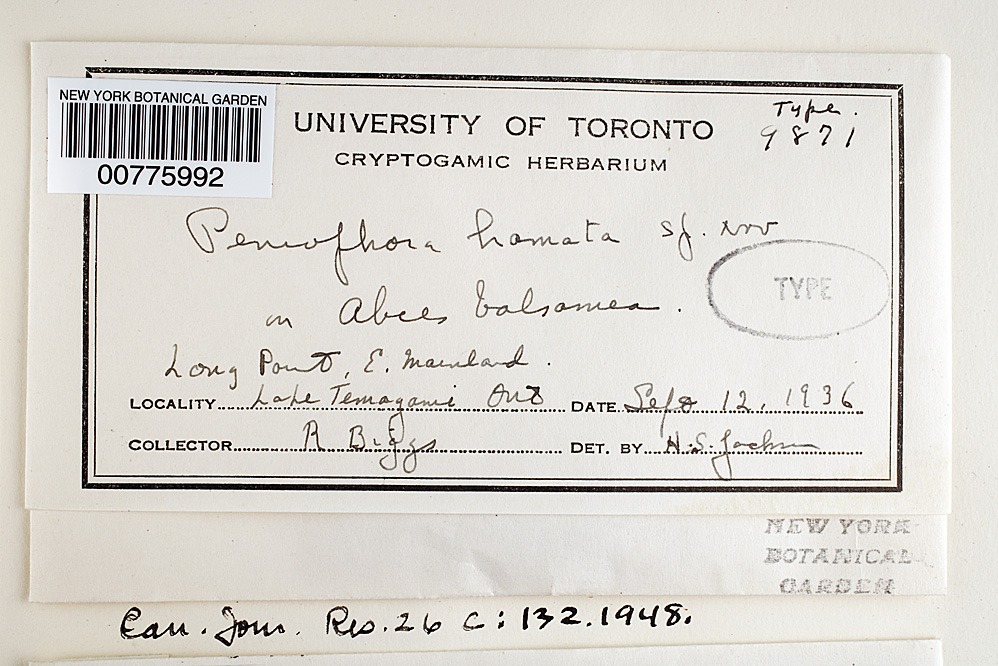 NEW YORK BOTANICAL GARDEN
00775992
UNIVERSITY OF TORONTO
CRYPTOGAMIC HERBARIUM
Type.
9871
Peniophora hamata sp. nov
on Abies balsamea.
TYPE
Long Point, E. Mainland.
LOCALITY Lake Temagami Ont DATE Sept 12, 1936
COLLECTOR R Biggs DET. BY H.S. Jackson
NEW YORK
BOTANICAL
GARDEN
Can. Jour. Res. 26 C: 132. 1948.